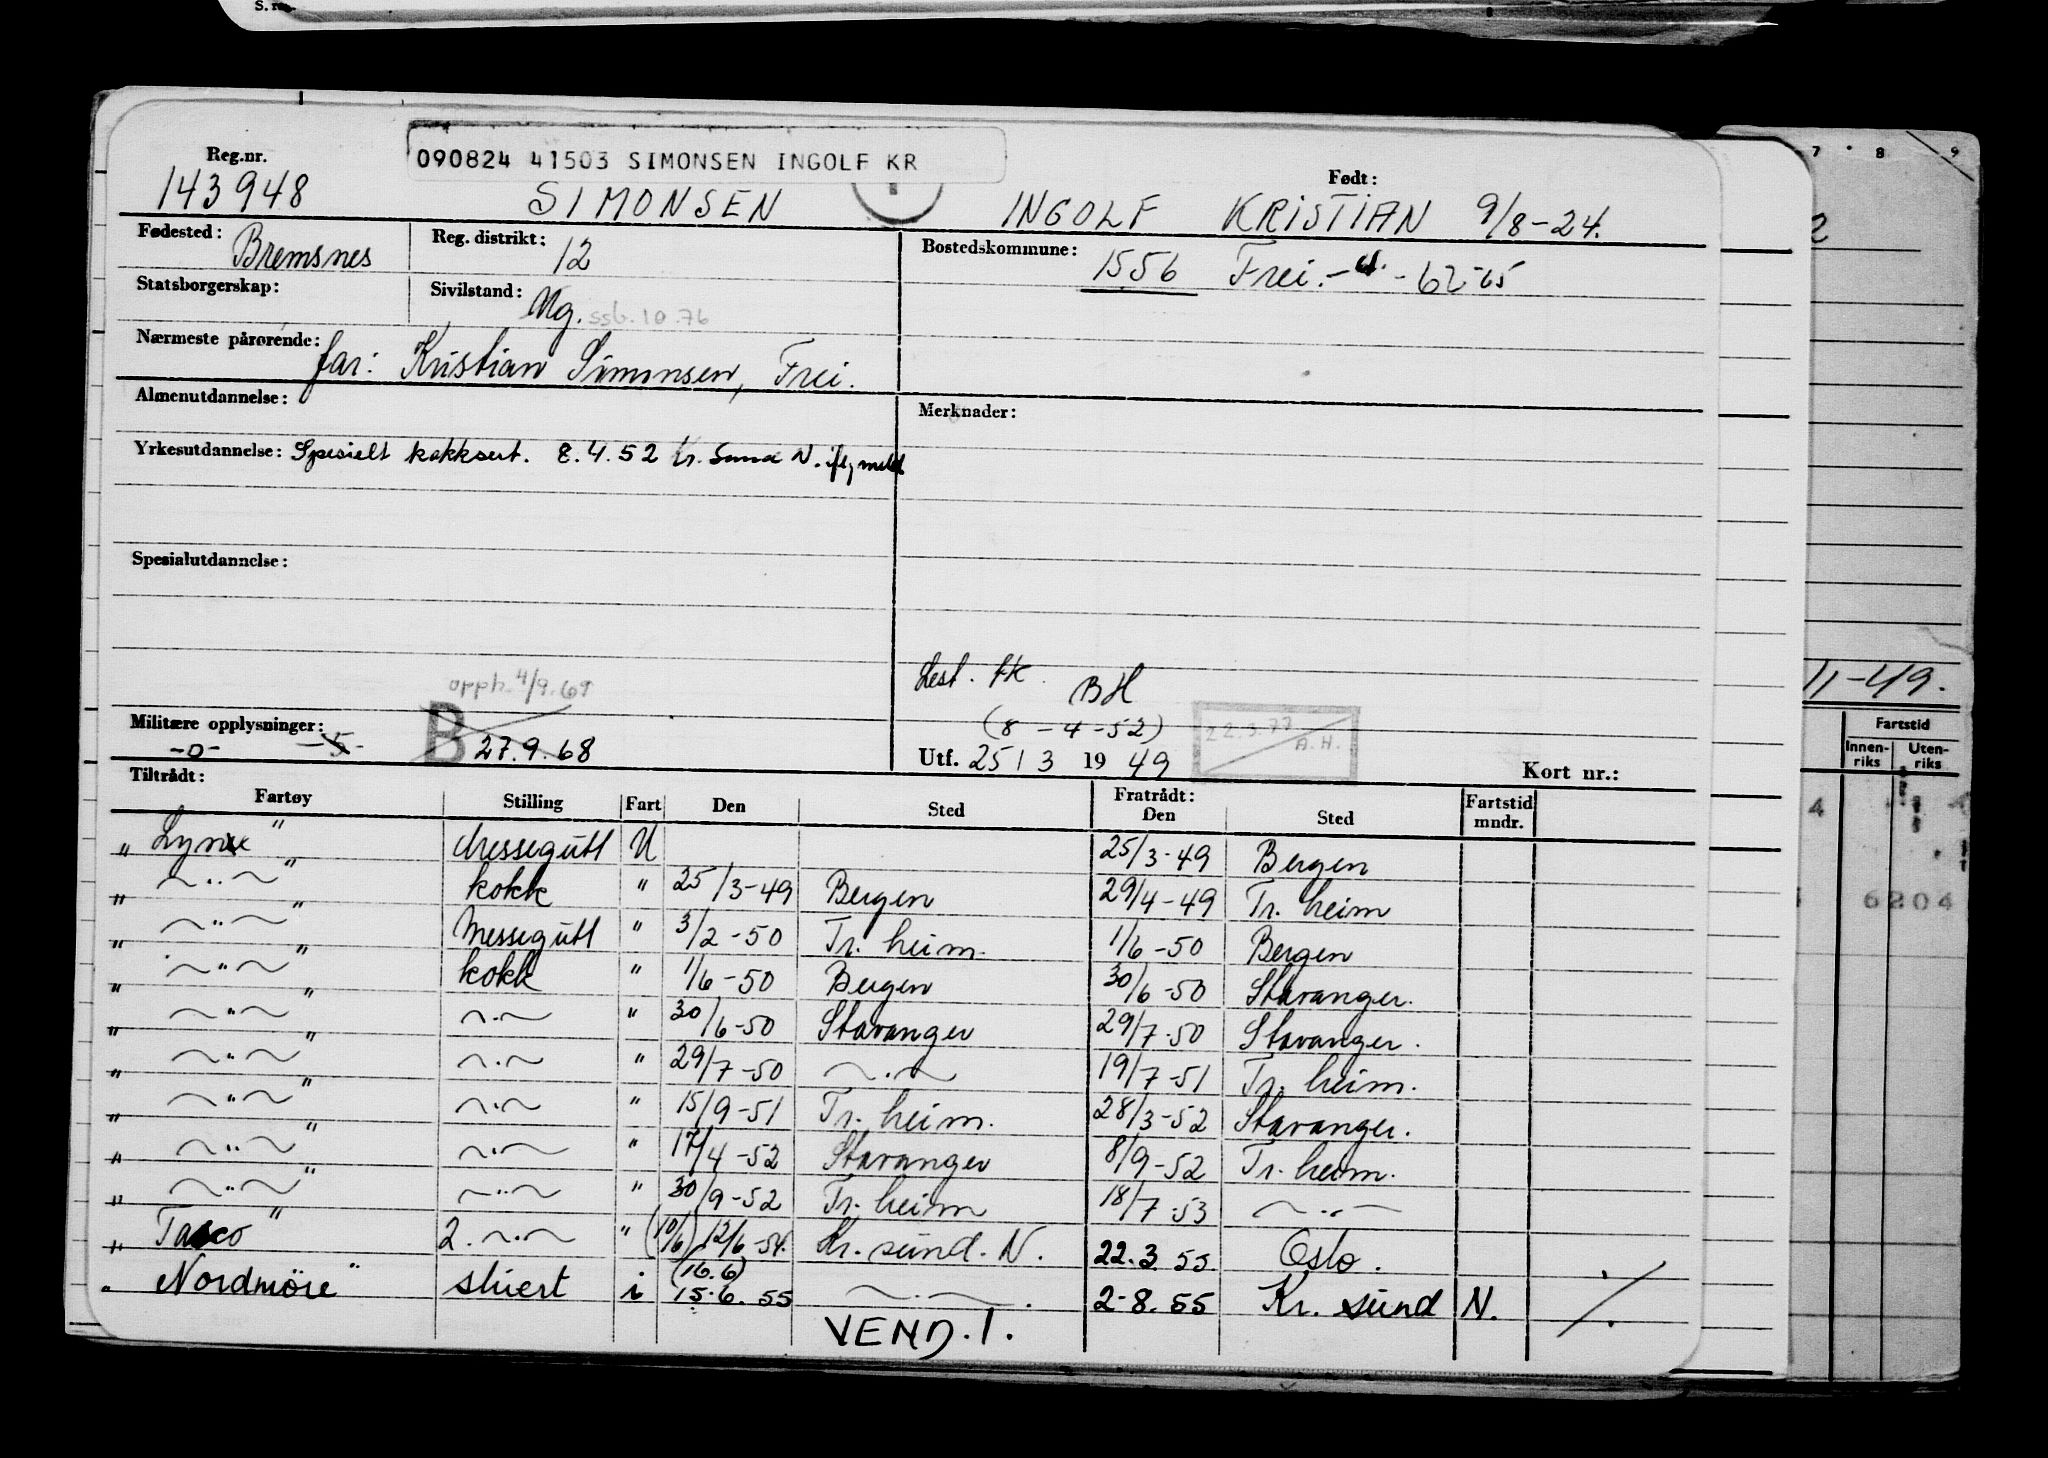 S.
Reg.nr.
143948
090824 41503 SIMONSEN INGOLF KR
SIMONSEN INGOLF KRISTIAN
Født:
9/8-24.
Fødested: Bremsnes
Reg. distrikt: 12
Bostedskommune: 1556 Frei. - " - 62-65
Statsborgerskap:
Sivilstand: Ug. ssb. 10.76
Nærmeste pårørende: far: Kristian Simonsen, Frei.
Almenutdannelse:
Merknader:
Yrkesutdannelse: Spesielt kokksert. 8.4.52 Kr. Sund N. iflg meld
Spesialutdannelse:
opph. 4/9.69
Lest. tk. BH
(8-4-52)
Militære opplysninger: -0- -5- B 27.9.68
Utf. 25/3 1949
22.3.77
A.H.
Kort nr.:
Tiltrådt:
Fratrådt:
Fartøy Stilling Fart Den Sted Den Sted Fartstid mndr.
" Lynx " Messegutt U 25/3-49 Bergen
" ~ " ~ " kokk " 25/3-49 Bergen 29/4-49 Tr. heim
" ~ " ~ " Messegutt " 3/2-50 Tr. heim. 1/6-50 Bergen
" ~ " ~ " kokk " 1/6-50 Bergen 30/6-50 Stavanger.
" ~ " ~ " ~ " ~ " 30/6-50 Stavanger 29/7-50 Stavanger.
" ~ " ~ " ~ " ~ " 29/7-50 ~ " ~ 19/7-51 Tr. heim.
" ~ " ~ " ~ " ~ " 15/9-51 Tr. heim. 28/3-52 Stavanger.
" ~ " ~ " ~ " ~ " 17/4-52 Stavanger 8/9-52 Tr. heim.
" ~ " ~ " ~ " ~ " 30/9-52 Tr. heim 18/7-53 ~ " ~
" Tasco " 2. ~ " ~ " (10/6) 12/6-54. Kr. sund. N. 22.3.55 Oslo.
" Nordmöre " stuert i (16.6) 15.6.55 ~ " ~. 2-8.55 Kr. sund N.
VEND.!.
7 8 9
2
11-49.
Fartstid
Innenriks Utenriks
4
6204